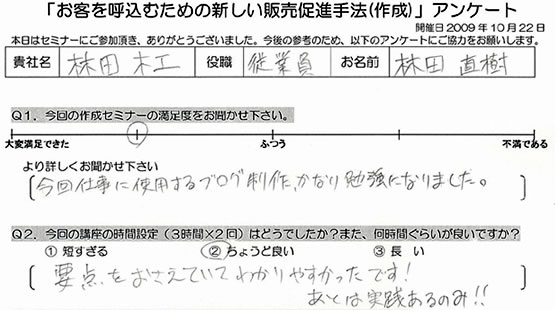 「お客を呼込むための新しい販売促進手法(作成)」アンケート
開催日2009年10月22日
本日はセミナーにご参加頂き、ありがとうございました。今後の参考のため、以下のアンケートにご協力をお願いします。
貴社名 林田木工 役職 従業員 お名前 林田 直樹
Q1．今回の作成セミナーの満足度をお聞かせ下さい。
大変満足できた ふつう 不満である
より詳しくお聞かせ下さい
今回仕事に使用するブログ制作、かなり勉強になりました。
Q2．今回の講座の時間設定（3時間×2回）はどうでしたか？また、何時間ぐらいが良いですか？
① 短すぎる ② ちょうど良い ③ 長 い
要点をおさえていてわかりやすかったです!
あとは実践あるのみ!!